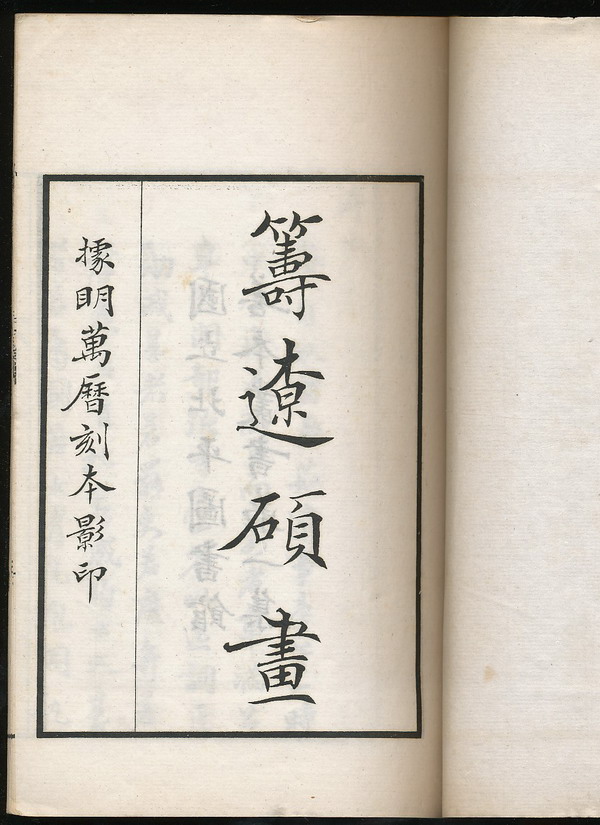 籌遼碩畫
據明萬曆刻本影印